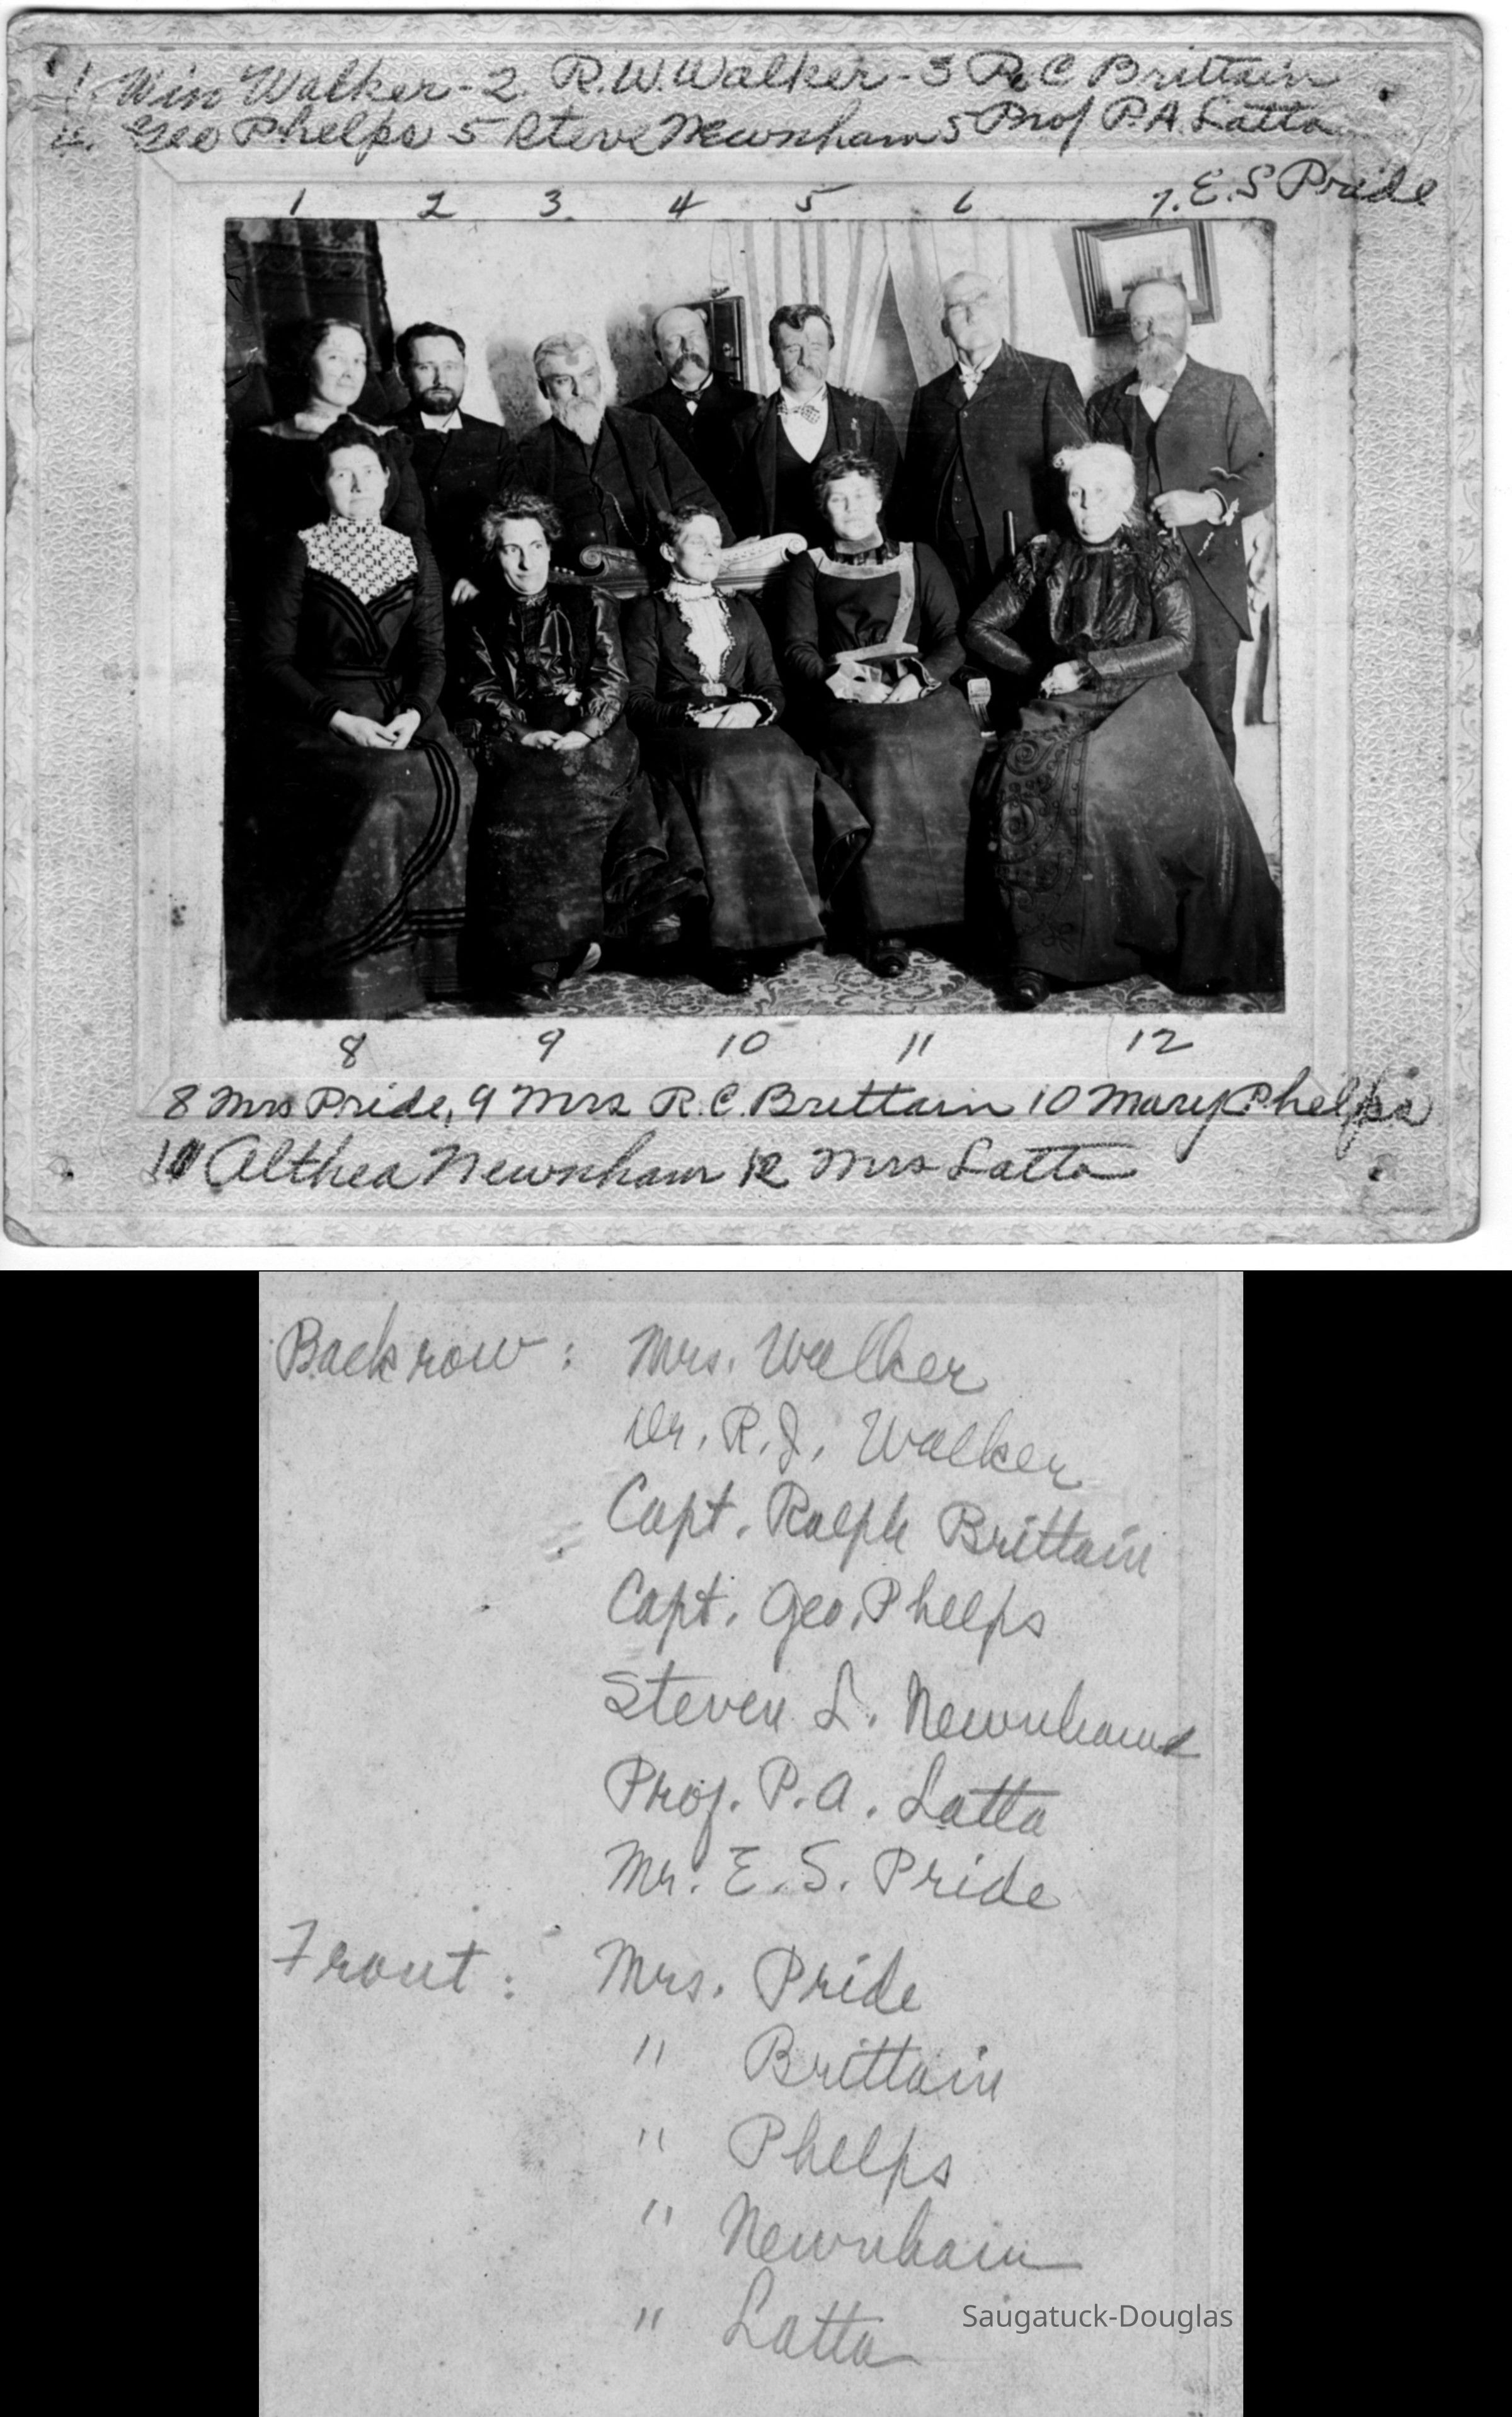 1. Win Walker - 2. R.W. Walker - 3 R C Brittain
4. Geo Phelps 5 Steve Newnham 5 Prof P.A. Latta
1 2 3. 4 5 6 7. E. S Pride
8 9 10 11 12
8 Mrs Pride, 9 Mrs R. C. Brittain 10 Mary Phelps
11 Althea Newnham 12 Mrs Latta
Back row : Mrs. Walker
Dr. R. J. Walker
Capt. Ralph Brittain
Capt. Geo. Phelps
Steven L. Newnham
Prof. P. A. Latta
Mr. E. S. Pride
Front : Mrs. Pride
" Brittain
" Phelps
" Newnham
" Latta
Saugatuck-Douglas